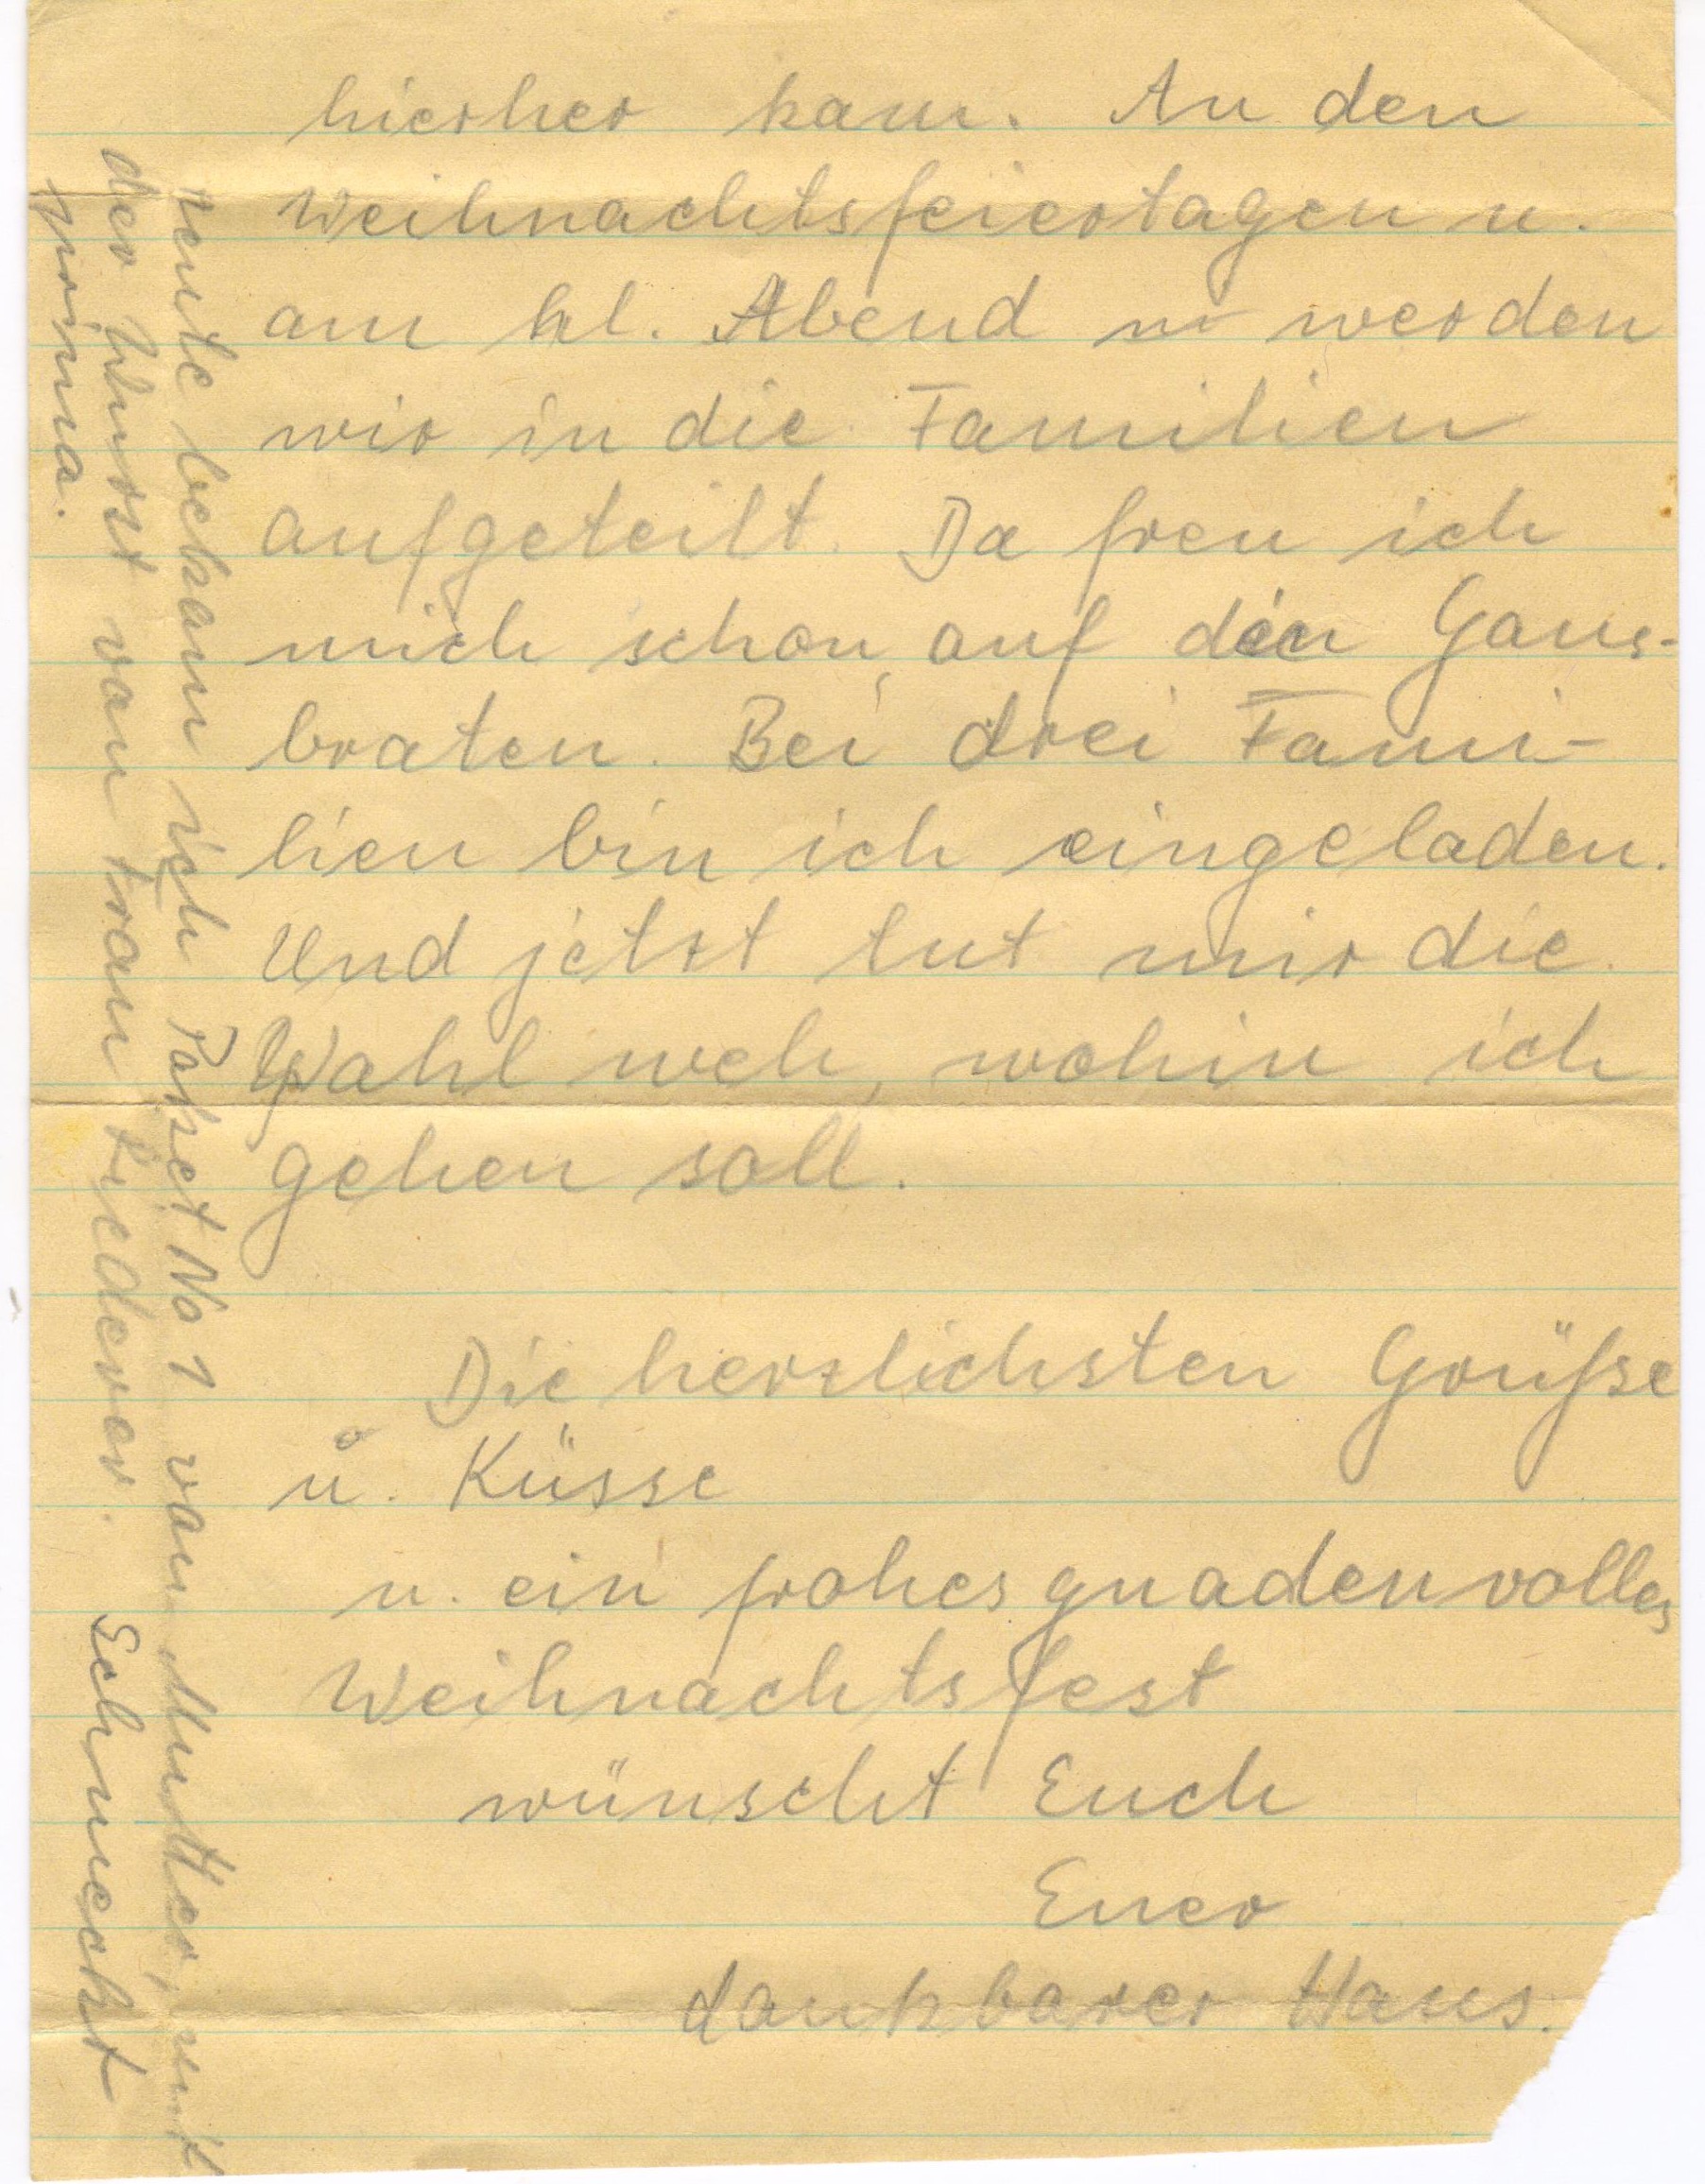 hierher kam. An den
Weihnachtsfeiertagen u.
am hl. Abend w werden
wir in die Familien
aufgeteilt. Da freu ich
mich schon auf den Gans-
braten. Bei drei Fami-
lien bin ich eingeladen.
Und jetzt tut mir die
Wahl weh, wohin ich
gehen soll.
Die herzlichsten Grüße
u. Küsse
u. ein frohes gnadenvolles
Weihnachtsfest
wünscht Euch
Euer
dankbarer Hans.
Heute bekam ich Paket No 1 von Mutter, mit
der Wurst von Frau Niederer. Schmeckt
prima.